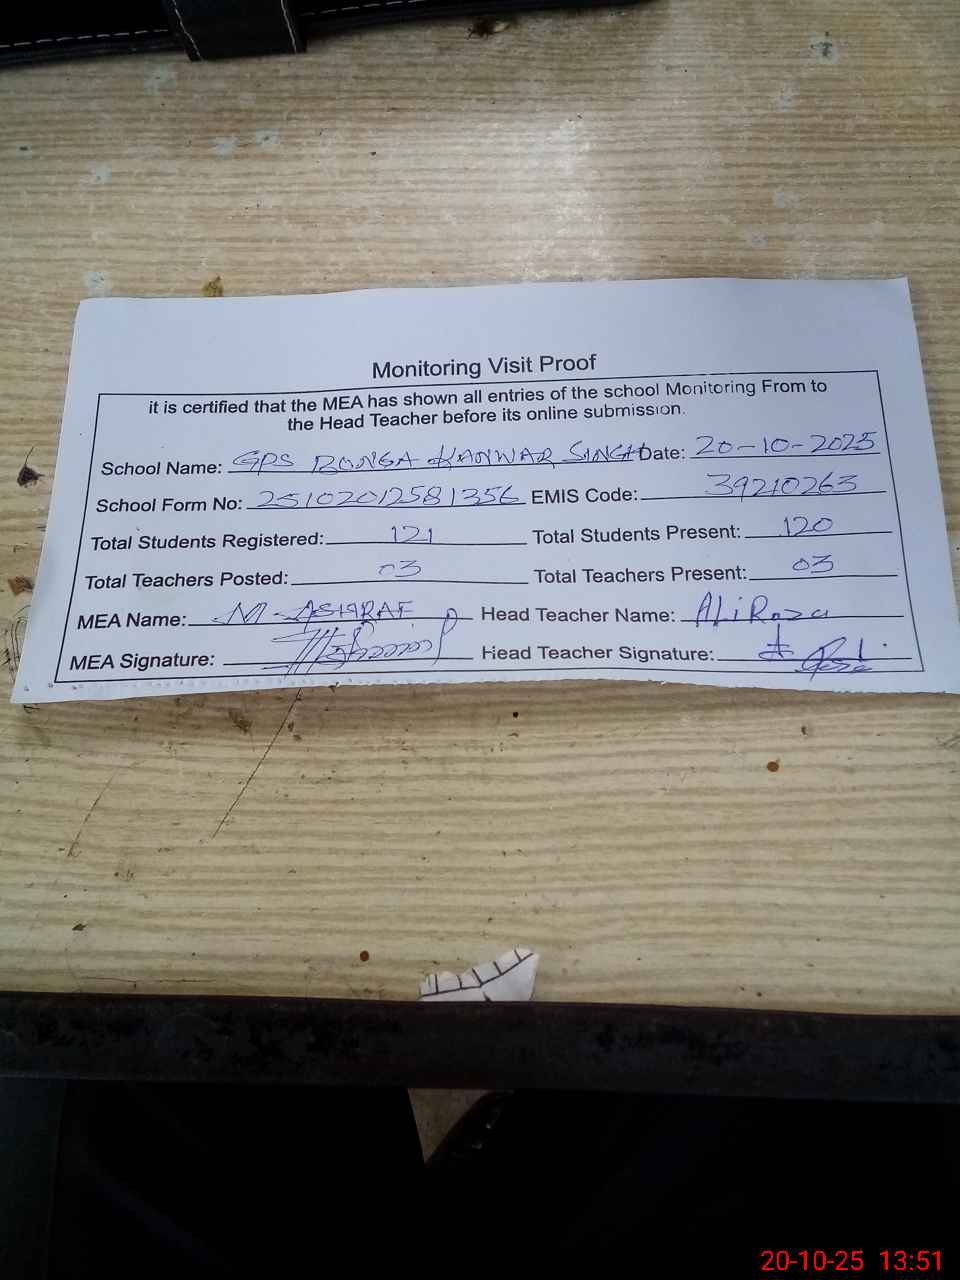 Monitoring Visit Proof
it is certified that the MEA has shown all entries of the school Monitoring From to
the Head Teacher before its online submission.
School Name: GPS BONGA KANWAR SINGH Date: 20-10-2025
School Form No: 2510201258 1356 EMIS Code: 39210263
Total Students Registered: 121 Total Students Present: 120
Total Teachers Posted: 03 Total Teachers Present: 03
MEA Name: M-ASHRAF Head Teacher Name: Ali Raza
MEA Signature: Head Teacher Signature:
20-10-25 13:51